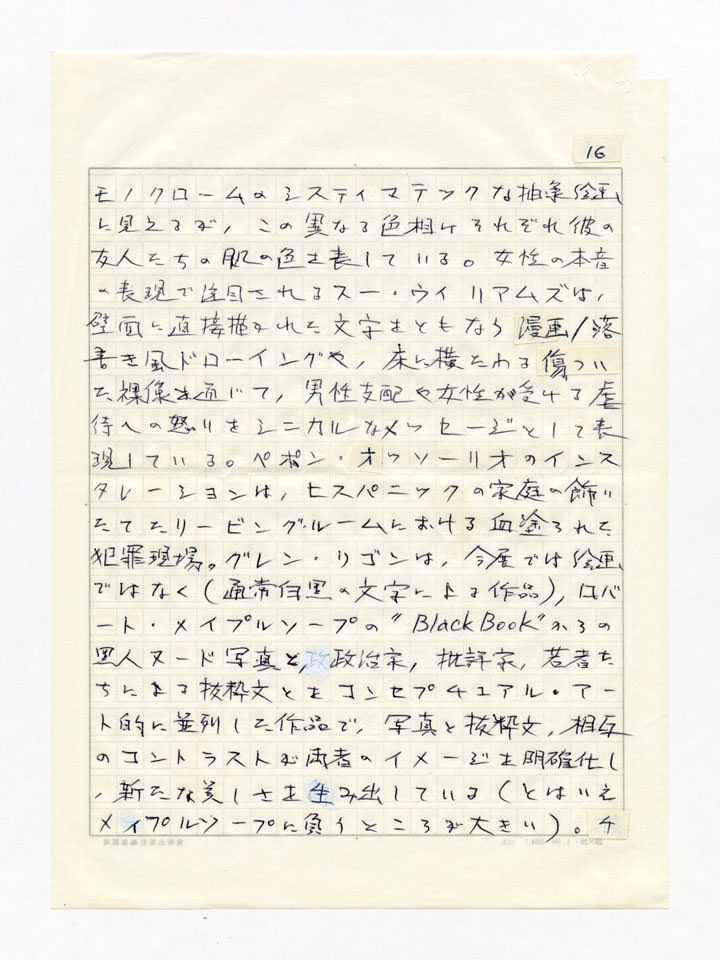 16
モノクロームのシスティマテックな抽象絵画
に見えるが，この異なる色相はそれぞれ彼の
友人たちの肌の色を表している。女性の本音
の表現で注目されるスー・ウイリアムズは，
壁面に直接描かれた文字をともなう漫画/落
書き風ドローイングや，床に横たわる傷つい
た裸像を通じて，男性支配や女性が受ける虐
待への怒りをシニカルなメッセージとして表
現している。ペポン・オッソーリオのインス
タレーションは，ヒスパニックの家庭の飾り
たてたリービング・ルームにおける血塗られた
犯罪現場。グレン・リゴンは，今展では絵画
ではなく(通常白黒の文字による作品)，ロバ
ート・メイプルソープの“Black Book”からの
黒人ヌード写真と，政治家，批評家，若者た
ちによる抜粋文とをコンセプチュアル・アー
ト的に並列した作品で，写真と抜粋文，相互
のコントラストが両者のイメージを明確化し
，新たな美しさを生み出している(とはいえ
メイプルソープに負うところが大きい)。チ